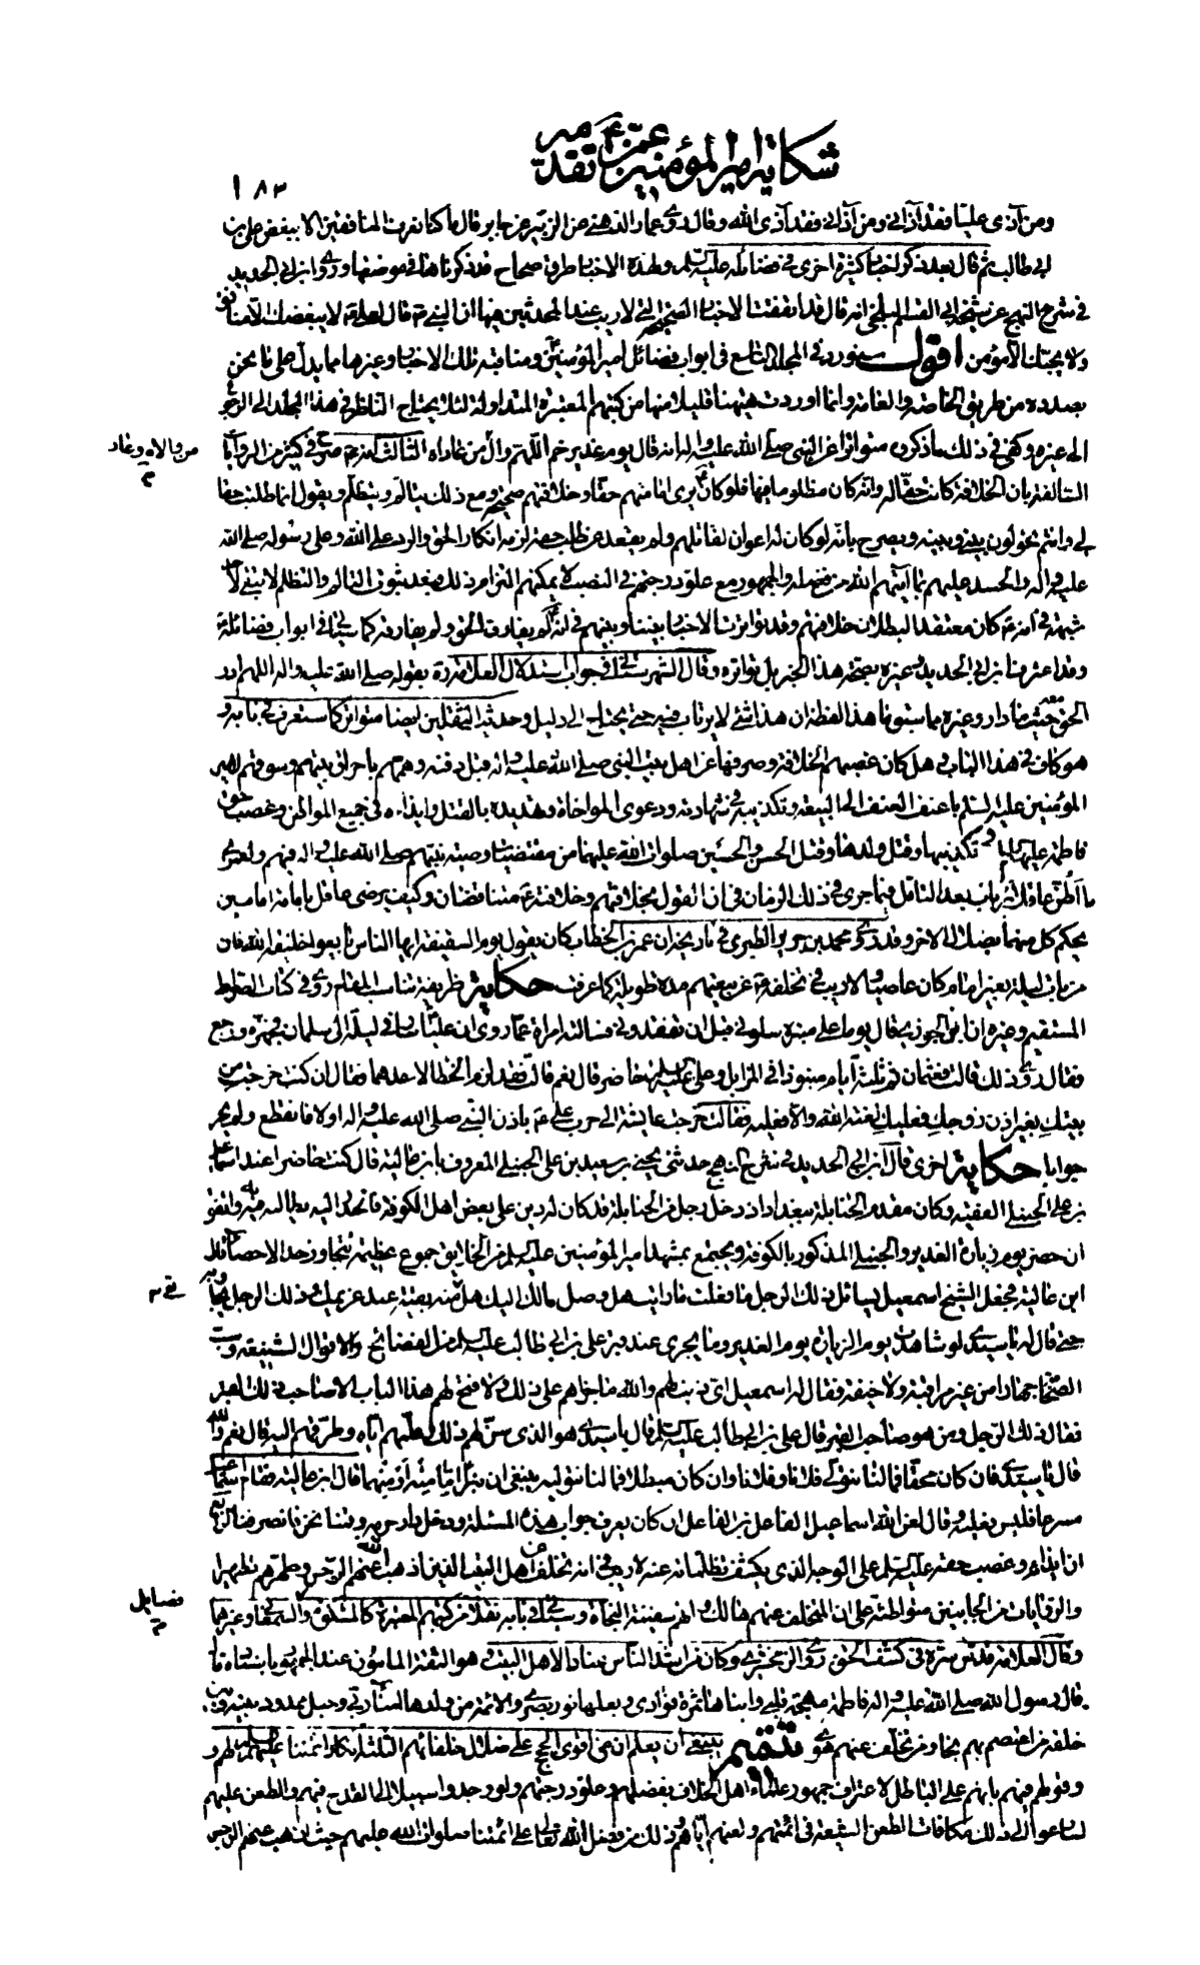 شكاية امير المؤمنين ع عمن تقدمه
١٨٣
ومن آذى عليا فقد آذاني ومن آذاني فقد آذى الله وقال روى عمار الدهني عن ابي الزبير عن جابر قال ما كنا نعرف المنافقين الا ببغض علي بن
ابي طالب ثم قال بعد ذكر اخبار كثيرة اخرى في فضائله عليه السلم ولهذه الاخبار طرق صحاح قد ذكرناها في موضعها وروى ابن ابي الحديد
في شرح النهج عن شيخه ابي القاسم البلخي انه قال قد اتفقت الاخبار الصحيحة التي لا ريب عند المحدثين فيها ان النبي ص قال لعلي ع لا يبغضك الا منافق
ولا يحبك الا مؤمن اقول سنورد في المجلد التاسع في ابواب فضائل امير المؤمنين ع ومناقبه تلك الاخبار وغيرها مما يدل على ما نحن
بصدده من طريق الخاصة والعامة وانما اوردت هيهنا قليلا منها من كتبهم المعتبرة المتداولة لئلا يحتاج الناظر في هذا المجلد الى الرجوع
الى غيره وكفى في ذلك ما ذكروه متواترا عن النبي صلى الله عليه واله انه قال يوم غدير خم اللهم وال من عاداه الثالث انه ع صرح في كثير من الروايات
من والاه وعاد
السالفة بان الخلافة كانت حقا له وانه كان مظلوما فيها فلو كان ع يرى امامتهم حقا وخلافتهم صحيحة ومع ذلك يتالم ويتظلم ويقول انما طلبت حقا
لي وانتم تحولون بيني وبينه ويصرح بانه لو كان له اعوان لقاتلهم ولم يقعد عن طلب حقه لزمه انكار الحق والرد على الله وعلى رسوله صلى الله
عليه واله والحسد عليهم بما آتيهم الله من فضله والجمهور مع علو درجتهم في النصب لا يمكنهم التزام ذلك فبعد ثبوت التالم والتظلم لا يبقى لاحد
شبهة في انه ع كان معتقدا لبطلان خلافتهم وقد تواترت الاخبار بيننا وبينهم في انه ع لم يفارق الحق ولم يفارقه كما سيجئ في ابواب فضائله ع
وقد اعترف ابن ابي الحديد وغيره بصحة هذا الخبر بل تواتره وقال الشهرستاني في جواب استدلال العلامة ره بقوله صلى الله عليه واله اللهم ادر
الحق معه حيث ما دار وغيره مما سبق ما هذا لفظه ان هذا شئ لا يرتاب فيه حتى يحتاج الى دليل وحديث الثقلين ايضا متواتر كما ستعرف في بابه و
هو كاف في هذا الباب وهل كان غصبهم الخلافة وصرفها عن اهل بيت النبي صلى الله عليه واله قبل دفنه وهمهم باحراق بيتهم وسوقهم لامير
المؤمنين عليه السلم باعنف العنف الى البيعة وتكذيبه في شهادته ودعوى المواخاة وتهديده بالقتل وايذاءه في جميع المواطن وغصب حق
فاطمة عليها السلم وتكذيبها وقتل ولدها وقتل الحسن والحسين صلوات الله عليهما من مقتضيات وصية نبيهم صلى الله عليه واله فيهم ولعمري
ما اظن عاقلا يرتاب بعد التامل فيما جرى في ذلك الزمان في ان القول بخلافتهم وخلافته ع متناقضان وكيف يرضى عاقل بامامة امامين
يحكم كل منهما بضلال الاخر وقد روى محمد بن جرير الطبري في تاريخه ان عمر بن الخطاب كان يقول يوم السقيفة ايها الناس بايعوا خليفة الله فان
من بات ليلة بغير امام كان عاصيا ولا ريب في تخلفه ع عن بيعتهم مدة طويلة كما عرفت حكاية ظريفة تناسب المقام روى في كتاب الصراط
المستقيم وغيره ان ابن الجوزي قال يوما على منبره سلوني قبل ان تفقدوني فسالته امراة عما روى ان عليا ع سار في ليلة الى سلمان فجهزه ورجع
فقال روى ذلك قالت وعثمان ثم ثلثة ايام منبوذا في المزابل وعلي عليه السلم حاضر قال نعم قالت فقد لزم الخطا لاحدهما فقال ان كنت خرجت من
بيتك بغير اذن زوجك فعليك لعنة الله والا فعليه فقالت خرجت عايشة الى حرب علي ع باذن النبي صلى الله عليه واله اولا فانقطع ولم يحر
جوابا حكاية اخرى قال ابن ابي الحديد في شرح النهج حدثني يحيى بن سعيد بن علي الحنبلي المعروف بابن عالية قال كنت حاضرا عند اسماعيل
بن علي الحنبلي الفقيه وكان مقدم الحنابلة ببغداد اذ دخل رجل من الحنابلة قد كان له دين على بعض اهل الكوفة فانحدر اليه يطالبه به واتفق
ان حضر يوم زيارة الغدير والحنبلي المذكور بالكوفة ويجتمع بمشهد امير المؤمنين عليه السلم من الخلايق جموع عظيمة تتجاوز حد الاحصاء قال
ابن عالية فجعل الشيخ اسمعيل يسائل ذلك الرجل ما فعلت ما رايت هل وصل مالك اليك هل بقي منه بقية عند غريمك وذلك الرجل يجاوبه
حتى قال له يا سيدي لو شاهدت يوم الزيارة يوم الغدير وما يجري عند قبر علي بن ابي طالب عليه السلم من الفضائح والاقوال الشنيعة وسب
الصحابة جهارا من غير مراقبة ولا خيفة فقال له اسمعيل اي ذنب لهم والله ما جراهم على ذلك ولا فتح لهم هذا الباب الا صاحب ذلك القبر
فقال ذلك الرجل ومن هو صاحب القبر قال علي بن ابي طالب عليه السلم قال يا سيدي هو الذي سن لهم ذلك وعلمهم اياه وطرقهم اليه قال نعم والله
قال يا سيدي فان كان محقا فما لنا نتولى فلانا وفلانا وان كان مبطلا فما لنا نتولاه ينبغي ان نبرأ اما منه او منهما قال ابن عالية فقام اسمعيل
مسرعا فلبس نعليه وقال لعن الله اسماعيل الفاعل بن الفاعل ان كان يعرف جواب هذه المسئلة ودخل دار حرمه وقمنا نحن فانصرفنا الرابع
ان ايذاءه وغصب حقه عليه السلم على الوجه الذي يكشف تظلماته عنه لا ريب في انه تخلف عن اهل البيت الذين اذهب الله عنهم الرجس وطهرهم تطهيرا
والروايات من الجانبين متواطئة على ان المتخلف عنهم هالك وانهم سفينة النجاة وسيجئ في بابه نقلا من كتبهم المعتبرة كالمشكوة والسمعاني وغيرهما
فضايل
وقال العلامة قدس سره في كشف الحق روى الزمخشري وكان من اشد الناس عنادا لاهل البيت وهو الثقة المامون عند الجمهور باسناده قال
قال رسول الله صلى الله عليه واله فاطمة مهجة قلبي وابناها ثمرة فؤادي وبعلها نور بصري والائمة من ولدها امناء ربي وحبل ممدود بينه وبين
خلقه من اعتصم بهم نجا ومن تخلف عنهم هوى تتميم ينبغي ان يعلم ان من اقوى الحجج على ضلال خلفائهم الثلثة انكار ائمتنا عليهم السلم لهم و
وقولهم فيهم بانهم على الباطل لاعتراف جمهور علماء اهل الخلاف بفضلهم وعلو درجتهم ولو وجدوا سبيلا الى القدح فيهم والطعن عليهم
لسارعوا الى ذلك مكافات لطعن الشيعة في ائمتهم ولعنهم اياهم وذلك من فضل الله تعالى على ائمتنا صلوات الله عليهم حيث اذهب عنهم الرجس